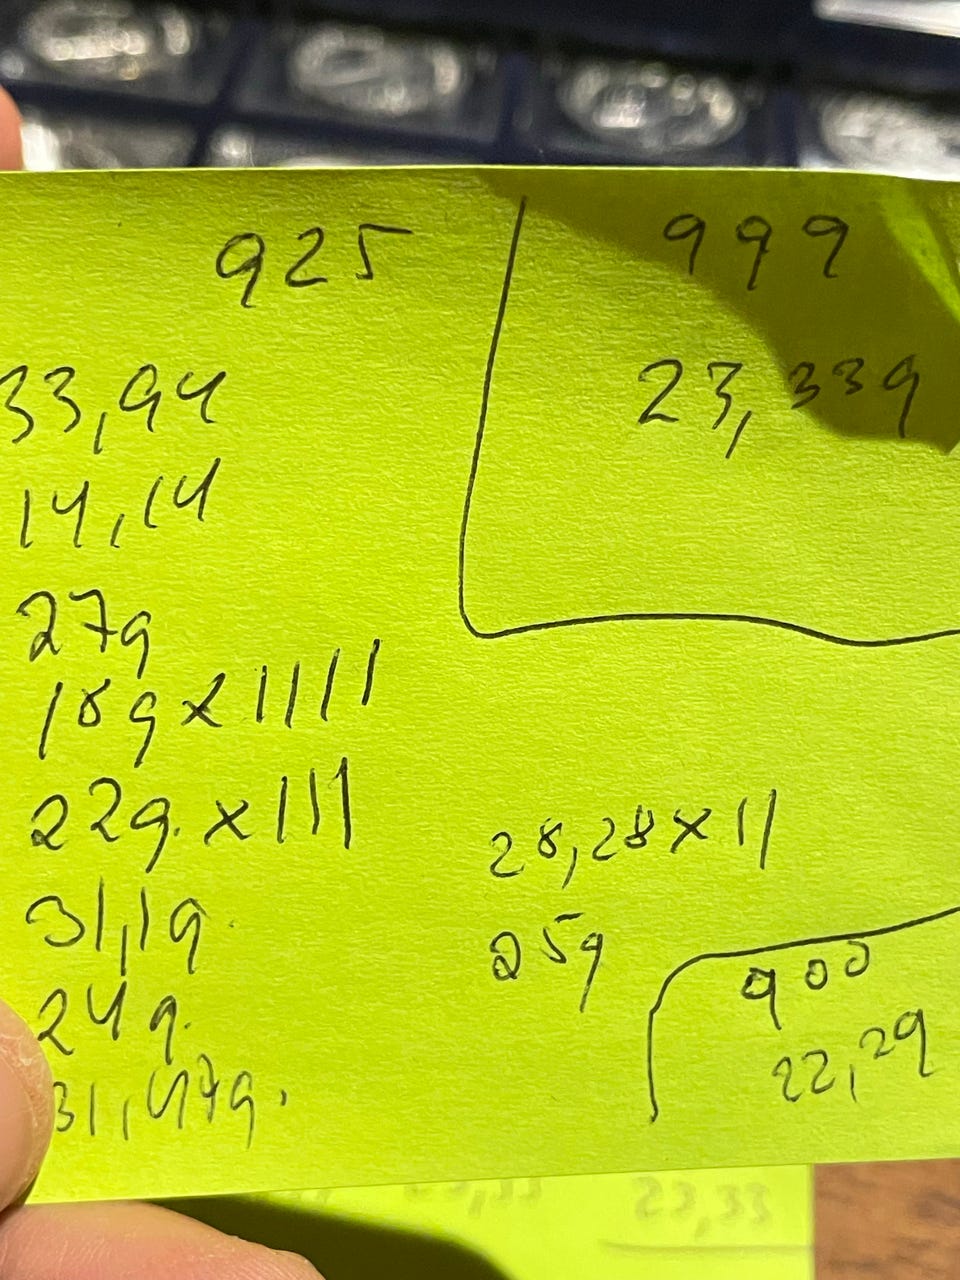 925
33,94
14,14
27g
18g x IIII
22g. x III
31,1g.
24g.
31,47g.
999
23,33g
28,28 x II
25g
900
22,2g
23,33